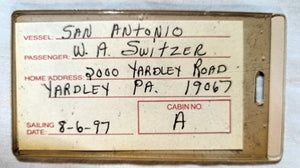 VESSEL: SAN ANTONIO
PASSENGER: W. A. SWITZER
HOME ADDRESS: 2000 YARDLEY ROAD
YARDLEY PA. 19067
CABIN NO.
SAILING DATE: 8-6-97 A